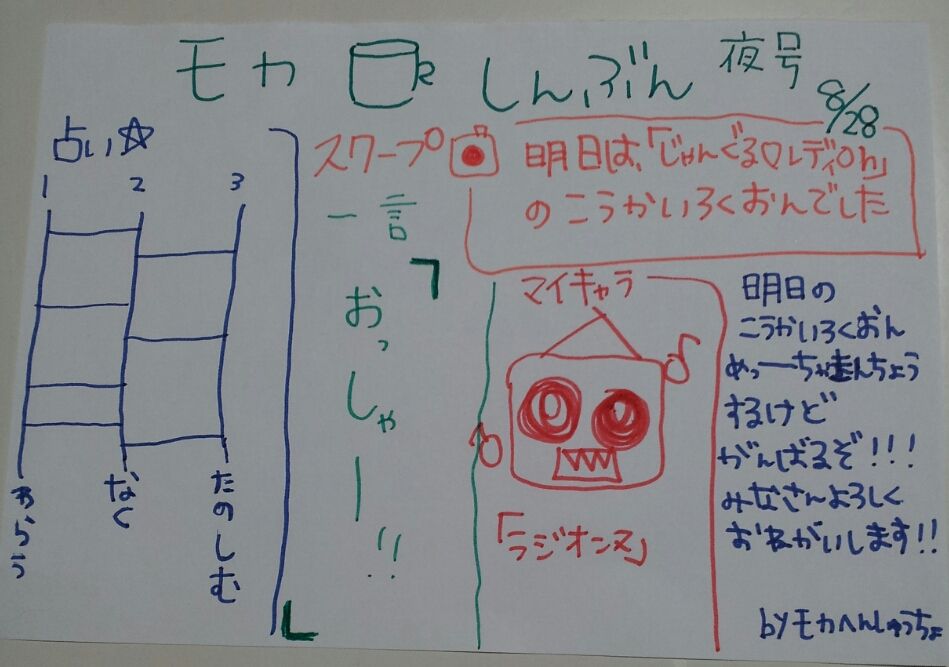 モカ しんぶん 夜号
8/28
占い☆
1 2 3
わらう
なく
たのしむ
スクープ
明日は、「じゃんぐるレディOh」
のこうかいろくおんでした
一言
「おっしゃー!!」
マイキャラ
「ラジオンヌ」
明日の
こうかいろくおん
めっーちゃきんちょう
するけど
がんばるぞ!!!
みなさんよろしく
おねがいします!!
byモカへんしゅうちょ